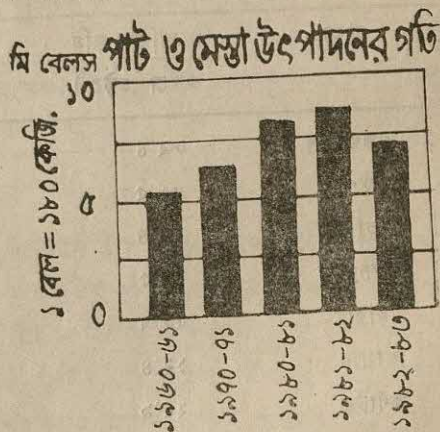 মি বেলস পাট ও মেস্তা উৎপাদনের গতি
১০
৫
০
১ বেল = ১৮০ কেজি.
১৯৬০-৬১
১৯৭০-৭১
১৯৮০-৮১
১৯৮১-৮২
১৯৮২-৮৩